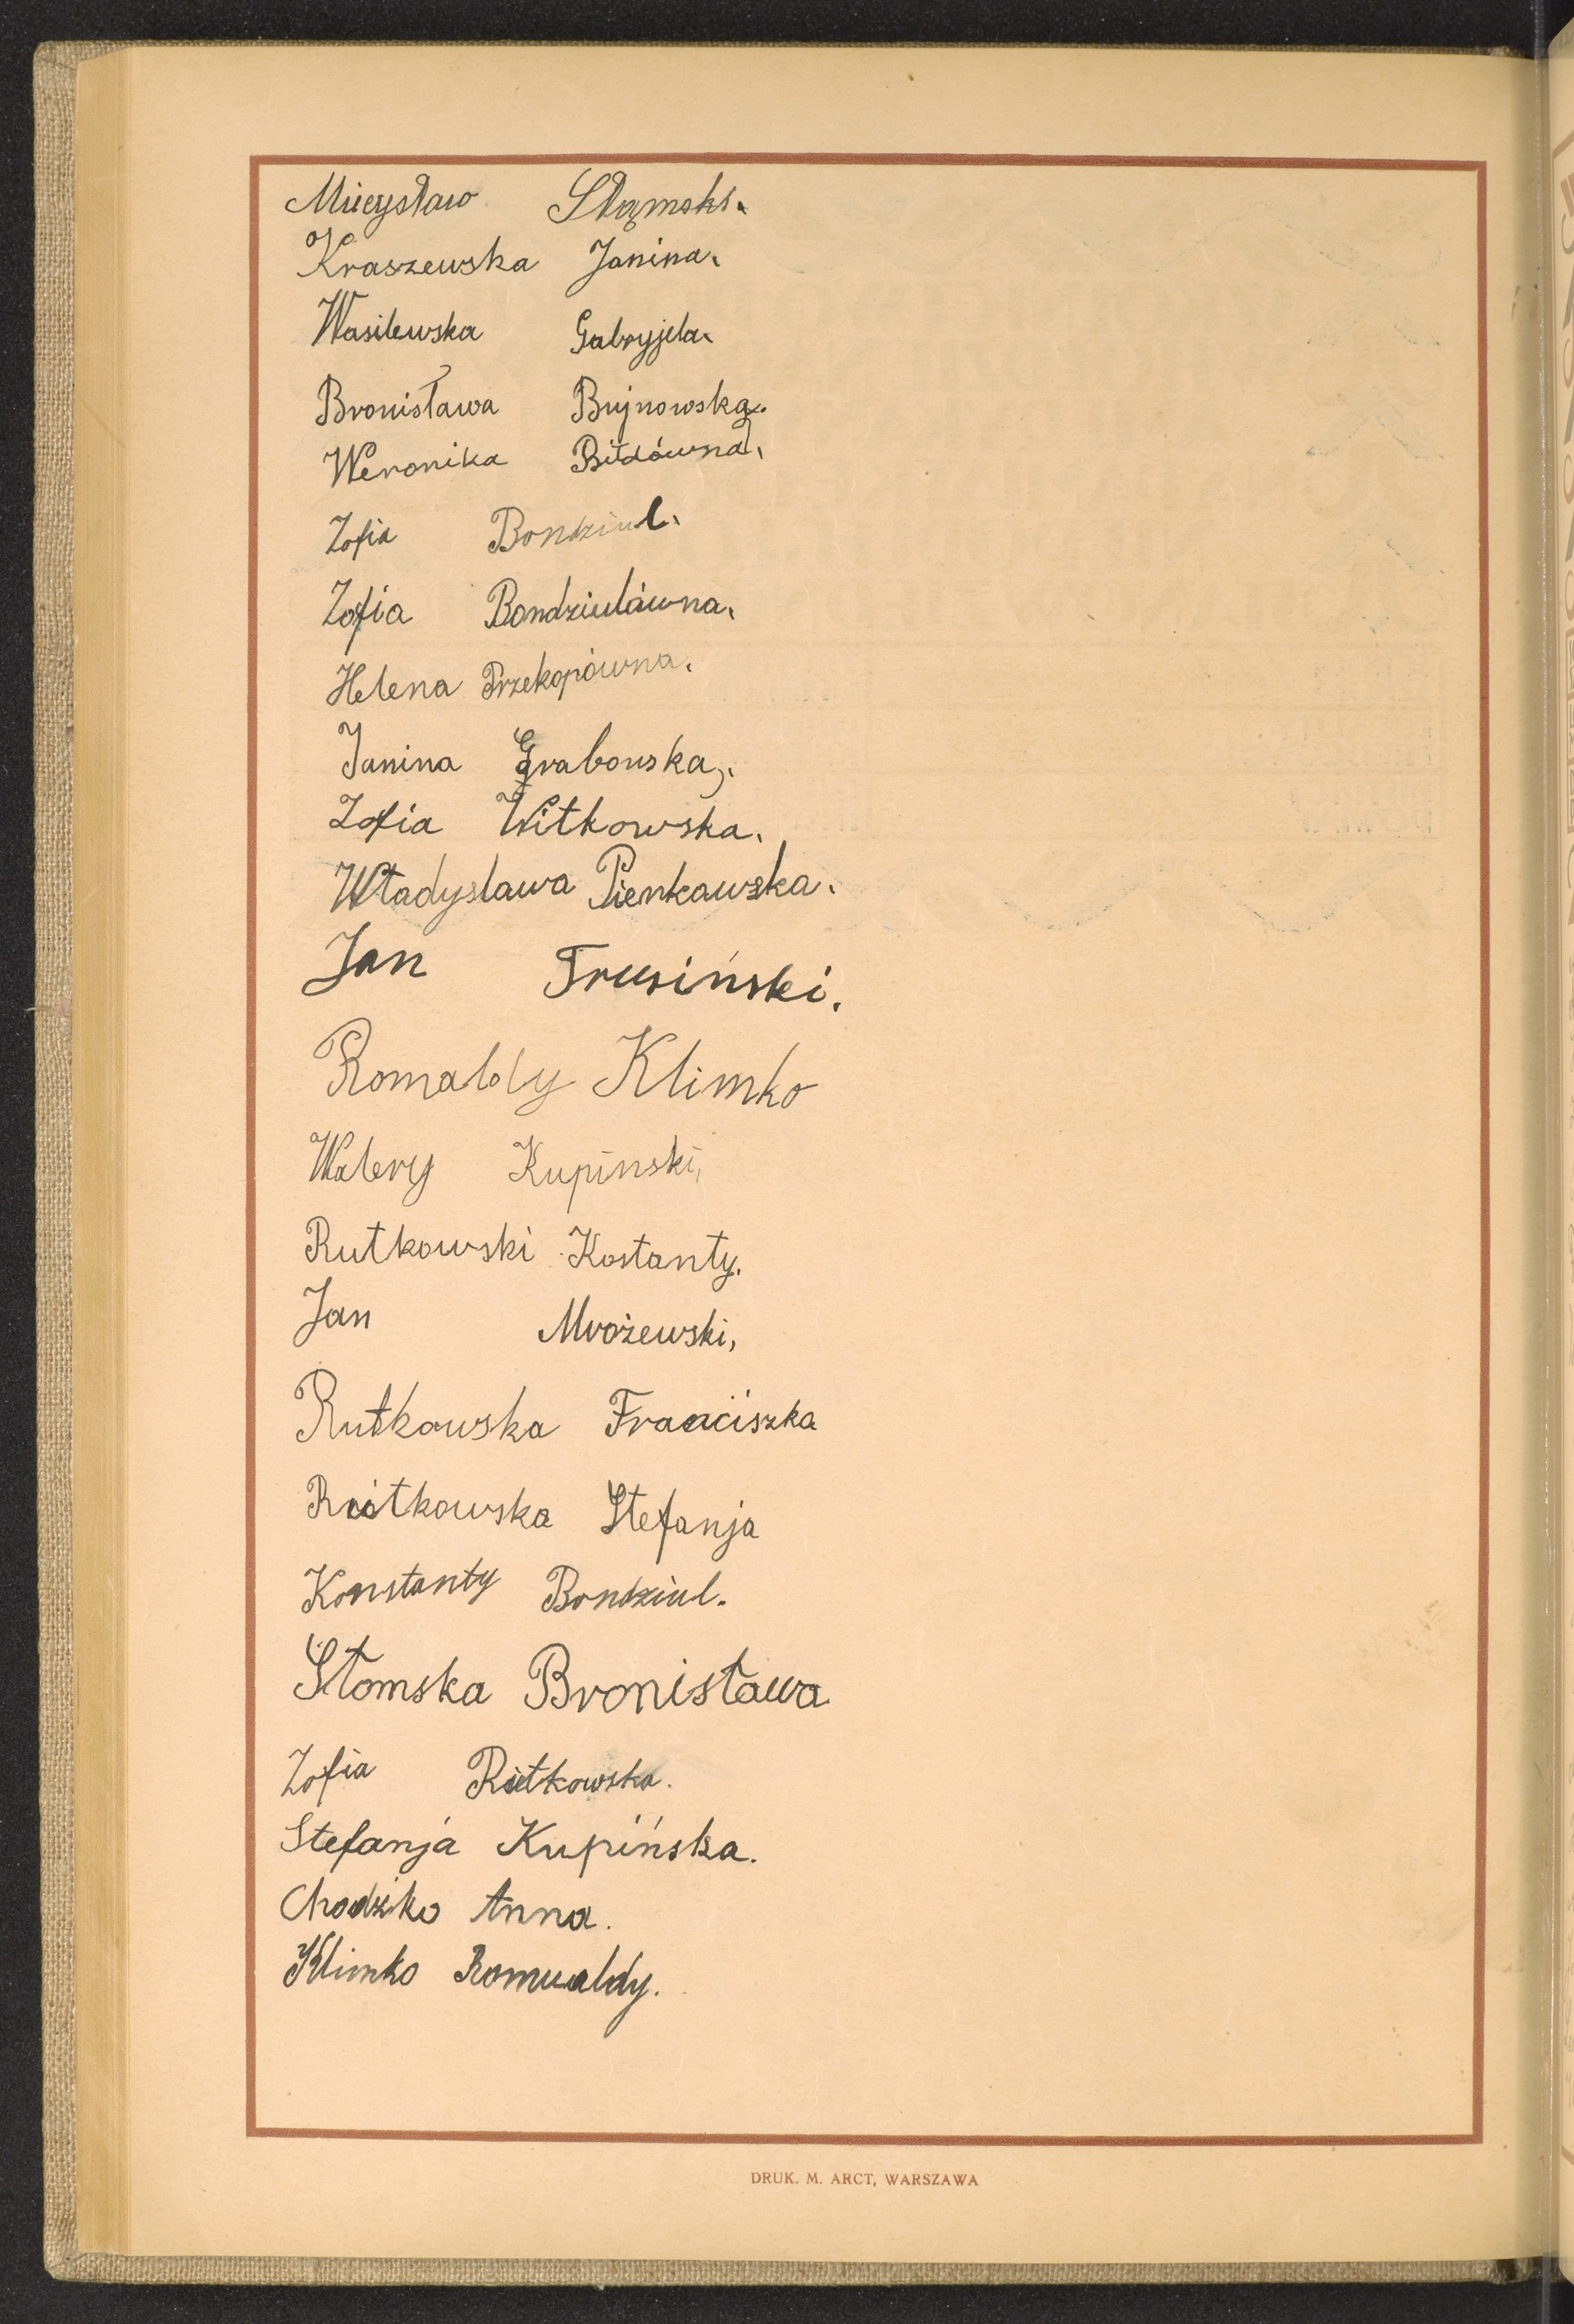 Mieczysław Słąmski.
Kraszewska Janina.
Wasilewska Gabryjela.
Bronisława Bujnowska.
Weronika Bildówna.
Zofia Bondziul.
Zofia Bondziulówna.
Helena Przekopówna.
Janina Grabowska.
Zofia Witkowska.
Władysława Pienkawska.
Jan Trusiński.
Romaldy Klimko
Walery Kupinski,
Rutkowski Kostanty.
Jan Mrożewski,
Rutkowska Franciszka
Rutkowska Stefanja
Konstanty Bondziul.
Słomska Bronisława
Zofia Rutkowska.
Stefanja Kupińska.
Chodźko Anna.
Klimko Romualdy.
DRUK. M. ARCT, WARSZAWA